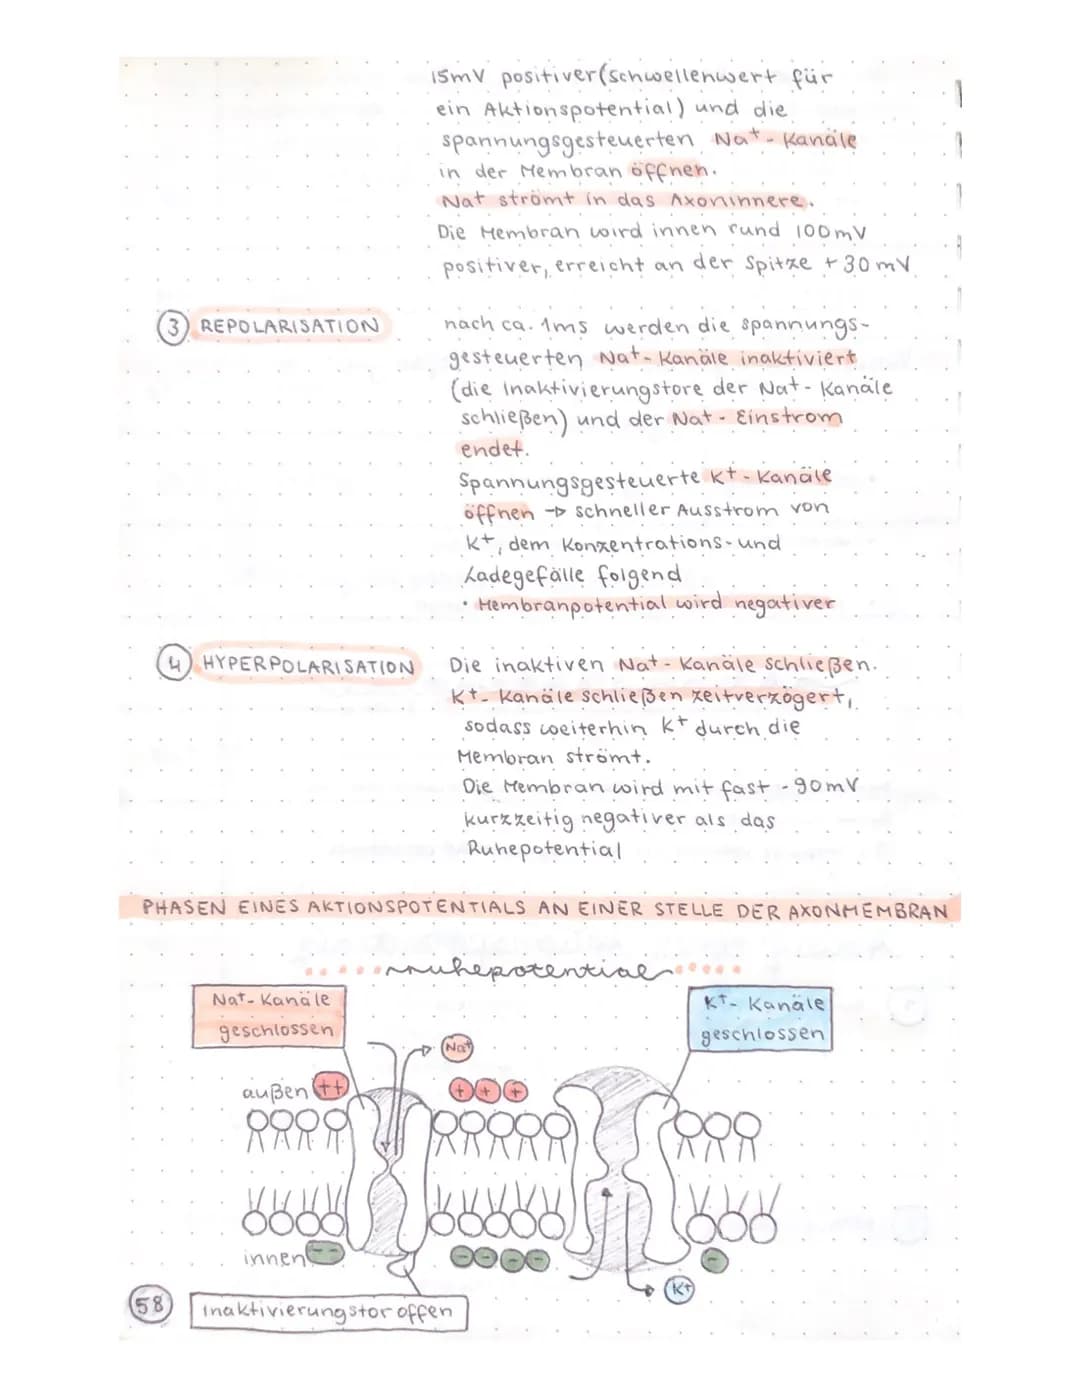 15mV positiver (Schwellenwert für
ein Aktionspotential) und die
spannungsgesteuerten Na+ - Kanäle
in der Membran öffnen.
Na+ strömt in das Axoninnere.
Die Membran wird innen rund 100mV
positiver, erreicht an der Spitze +30mV
3 REPOLARISATION
nach ca. 1ms werden die spannungs-
gesteuerten Na+ - Kanäle inaktiviert
(die Inaktivierungstore der Na+ - Kanäle
schließen) und der Na+ - Einstrom
endet.
Spannungsgesteuerte K+ - Kanäle
öffnen → schneller Ausstrom von
K+, dem Konzentrations- und
Ladegefälle folgend
• Membranpotential wird negativer
4 HYPERPOLARISATION
Die inaktiven Na+ - Kanäle schließen.
K+ - Kanäle schließen zeitverzögert,
sodass weiterhin K+ durch die
Membran strömt.
Die Membran wird mit fast -90mV
kurzzeitig negativer als das
Ruhepotential
PHASEN EINES AKTIONSPOTENTIALS AN EINER STELLE DER AXONMEMBRAN
ruhepotential
Na+ - Kanäle
geschlossen
K+ - Kanäle
geschlossen
Na+
außen ++
+ + +
innen - -
- - - -
-
K+
58
Inaktivierungstor offen